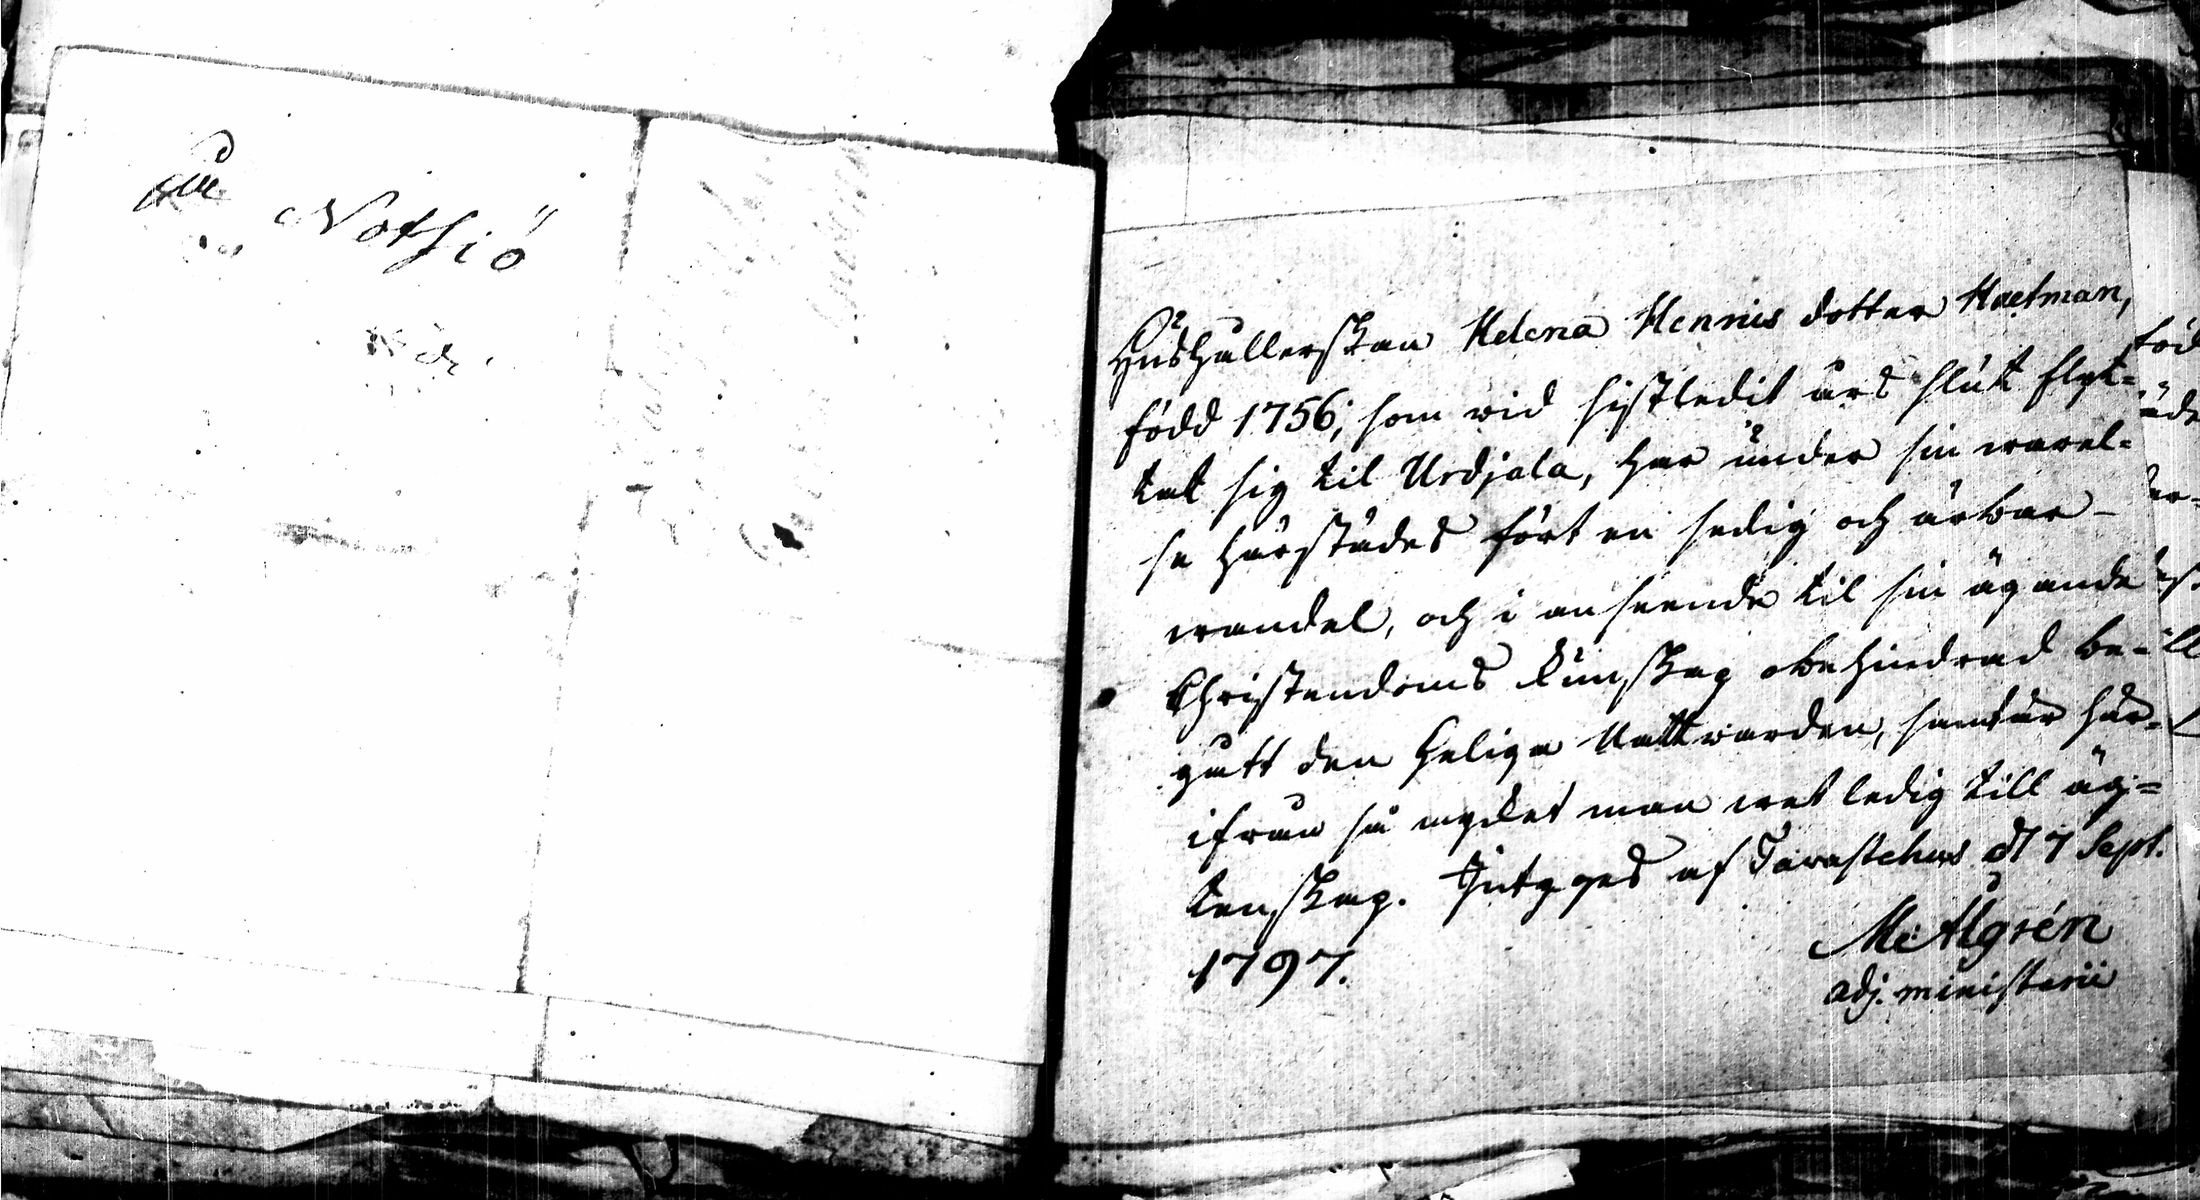 Notsiö
Hushållerskan Helena Hennis dotter Hartman,
född 1756; som wid sistledit års slut flyt-
tat sig til Urdjala, har under sin warel-
se härstädes fört en sedig och ärbar
wandel, och i anseende til sin ägande
Christendoms kunskap obehindrad be-
gått den heliga Nattwarden, samt är här-
ifrån så mycket man wet ledig till äg-
tenskap. Intygas af Tavastehus d 7 Sept.
1797.
M: Algrén
adj. ministerii